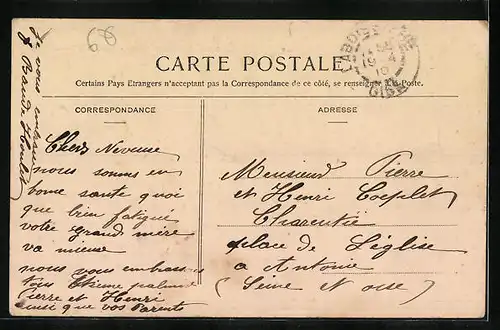 68
CARTE POSTALE
Certains Pays Etrangers n'acceptant pas la Correspondance de ce côté, se renseigner à la Poste.
CORRESPONDANCE
ADRESSE
Chers Neveux
nous sommes en
bonne sante quoi
que bien fatigué
votre grand mère
va mieux
nous vous embrassons
tous Etienne
Pierre et Henri
ainsi que vos Parents
Je vous embrasse
Monsieur Pierre
et Henri Coeplet
Charentie
place de L'église
a Antonie
(Seine et oise)